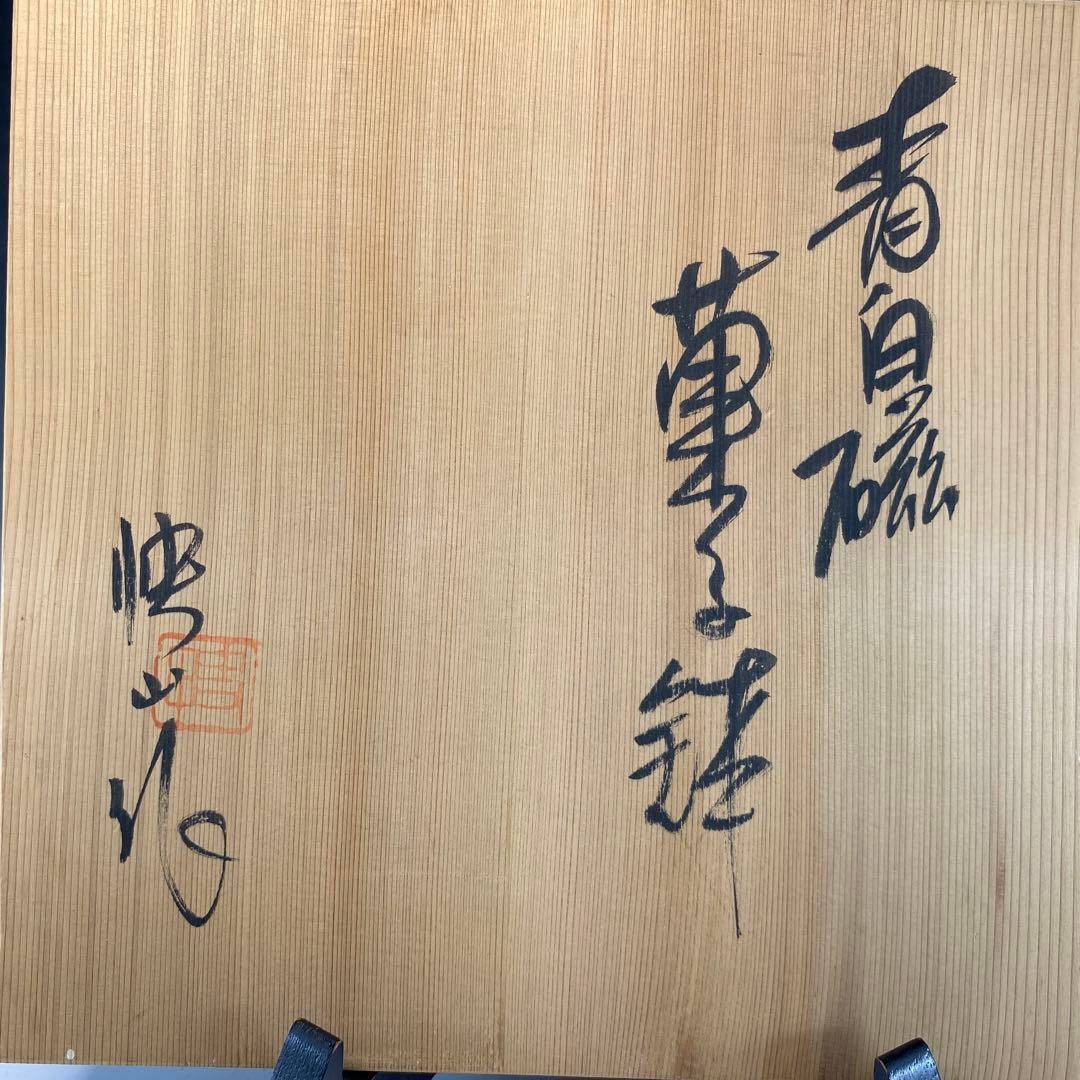 青白磁
菓子鉢
映山作